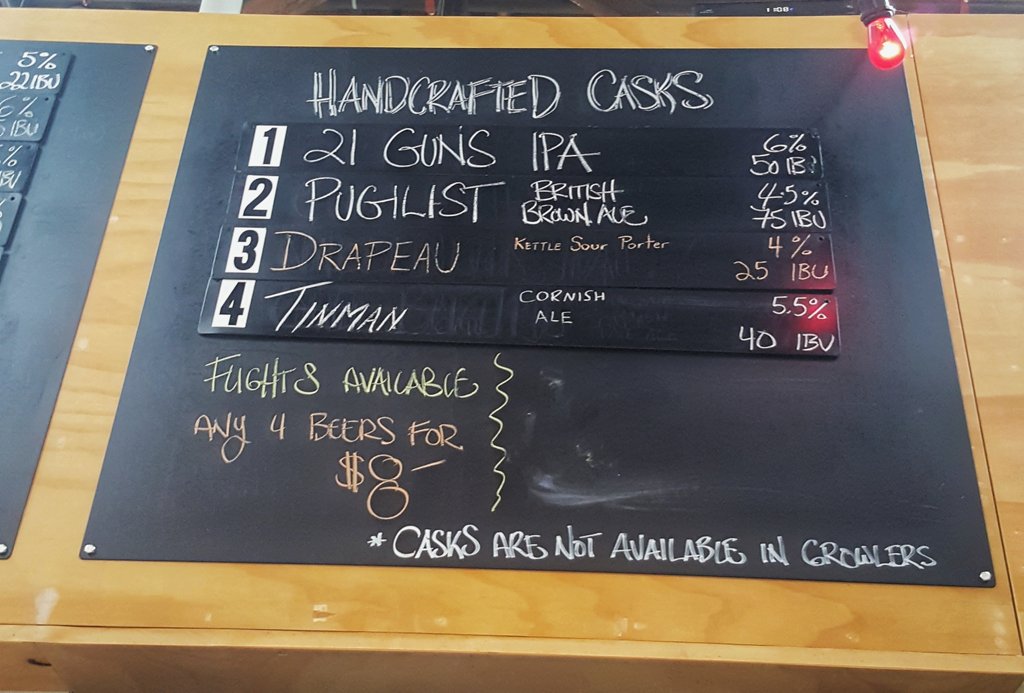 5%
22 IBU
HANDCRAFTED CASKS
1 21 GUNS IPA 6%
50 IB
2 PUGILIST BRITISH BROWN ALE 4.5%
75 IBU
3 DRAPEAU KETTLE SOUR PORTER 4%
25 IBU
4 TINMAN CORNISH ALE 5.5%
40 IBU
FLIGHTS AVAILABLE
ANY 4 BEERS FOR
$8 —
* CASKS ARE NOT AVAILABLE IN GROWLERS